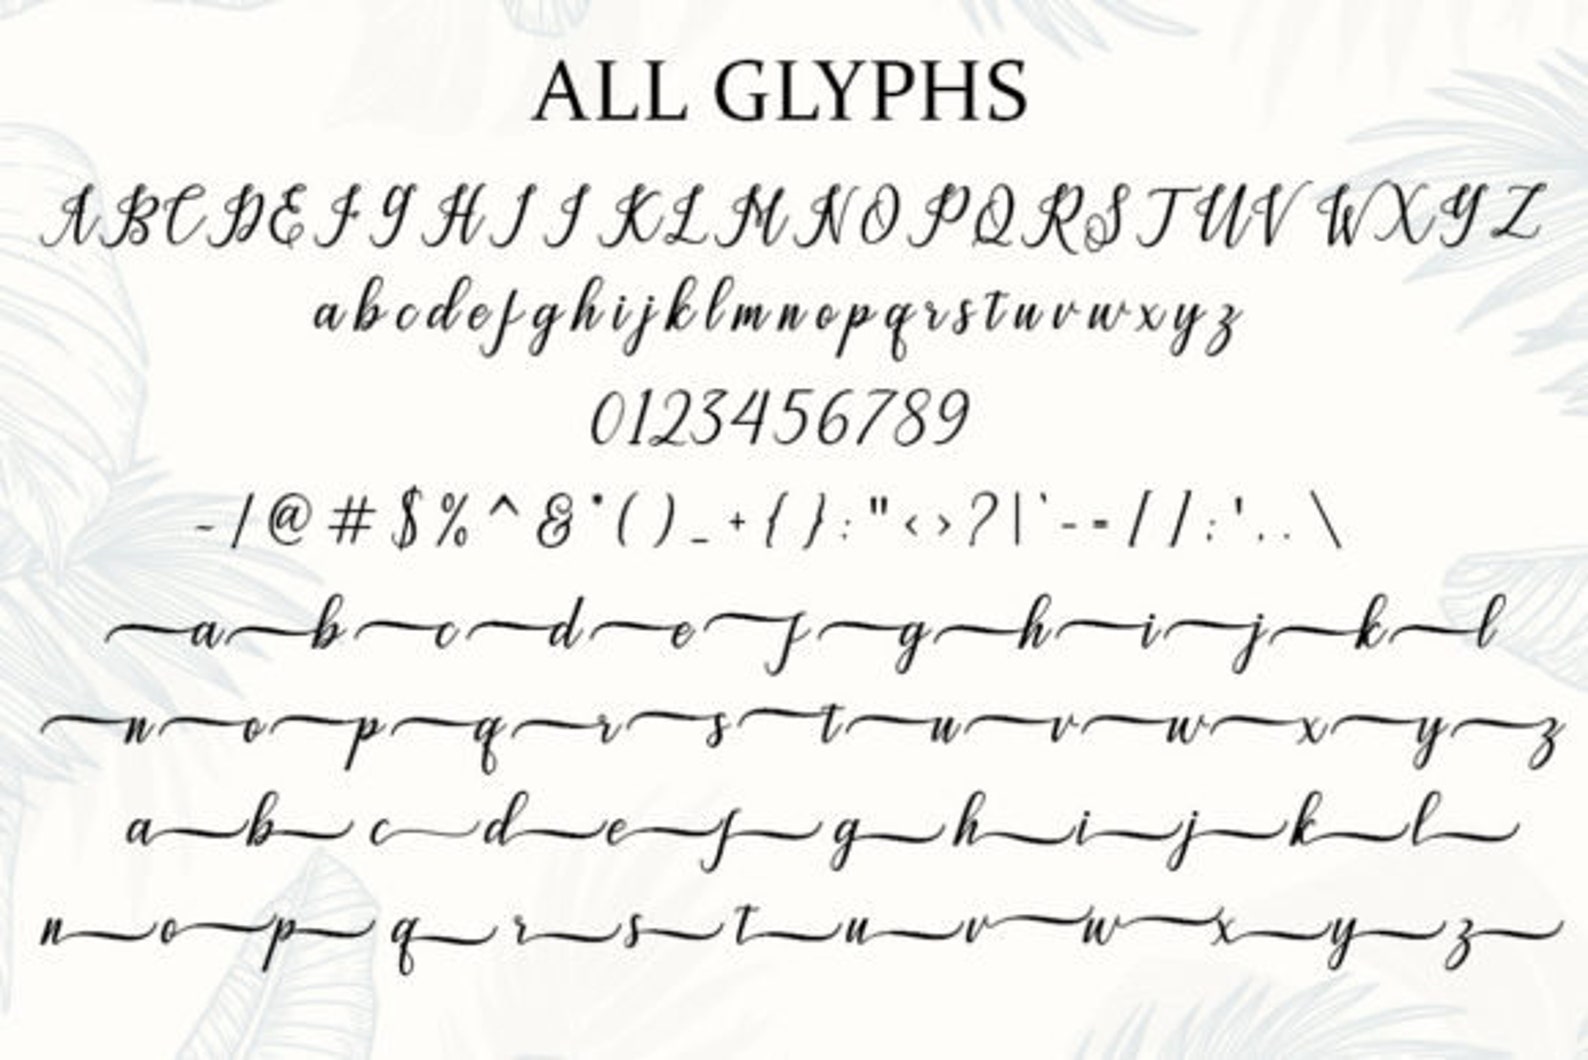 ALL GLYPHS
A B C D E F G H I J K L M N O P Q R S T U V W X Y Z
a b c d e f g h i j k l m n o p q r s t u v w x y z
0123456789
~ / @ # $ % ^ & * ( ) _ + { } : " < > ? | ` - = [ ] ; ' , . \
a b c d e f g h i j k l
n o p q r s t u v w x y z
a b c d e f g h i j k l
n o p q r s t u v w x y z